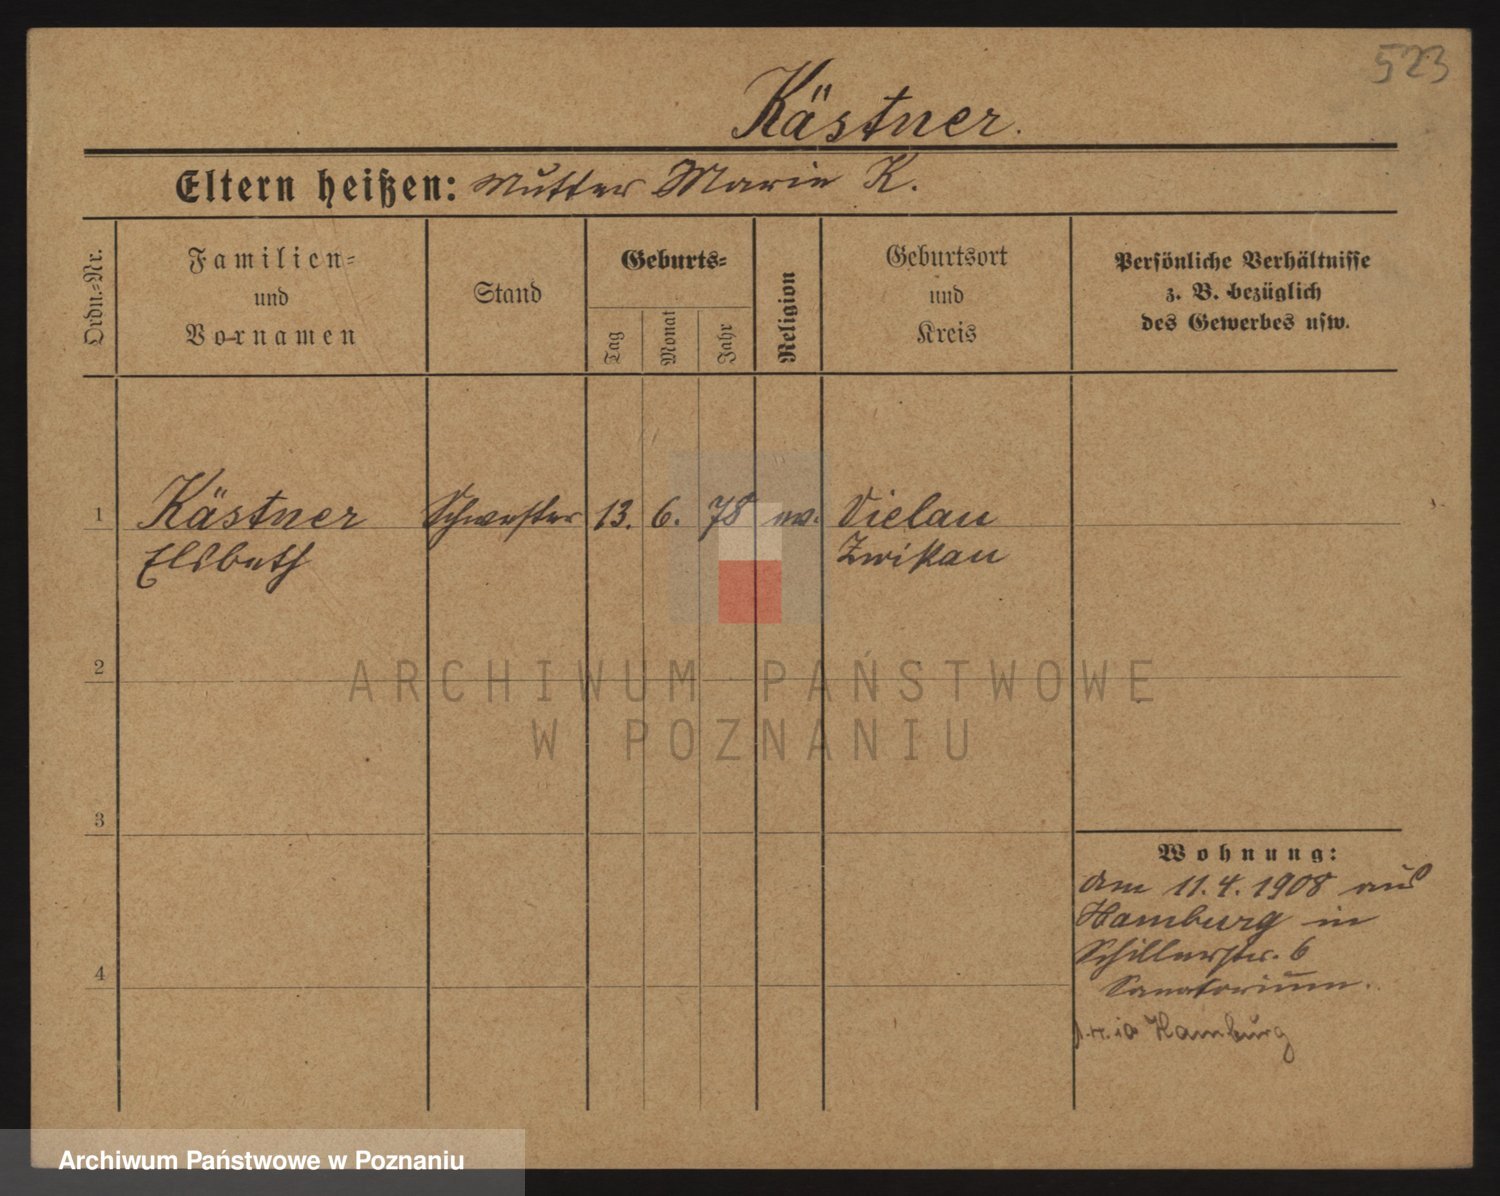 523
Kästner.
Eltern heißen: Mutter Marie K.
Ordn.-Nr.
Familien-
und
Vornamen
Stand
Geburts-
Tag
Monat
Jahr
Religion
Geburtsort
und
Kreis
Persönliche Verhältnisse
z. B. bezüglich
des Gewerbes usw.
1 Kästner Schwester 13. 6. 78 ev. Vielau
Elsbeth Zwikau
2
ARCHIWUM PAŃSTWOWE
W POZNANIU
3
Wohnung:
am 11.4.1908 aus
Hamburg in
Schillerstr. 6
4
Sanatorium.
Hamburg
Archiwum Państwowe w Poznaniu